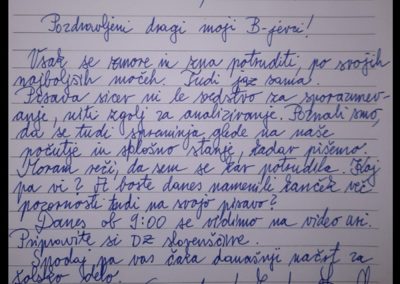 Pozdravljeni dragi moji B-jevci!
Vsak se zmore in zna potruditi, po svojih
najboljših močeh. Tudi jaz sama.
Pisava sicer ni le sredstvo za sporazumev-
anje, niti zgolj za analiziranje. Poznali smo,
da se tudi spreminja glede na naše
počutje in splošno stanje, kadar pišemo.
Moram reči, da sem se kar potrudila. Kaj
pa vi? A boste danes namenili kanček več
pozornosti tudi na svojo pisavo?
Danes ob 9:00 se vidimo na video uri.
Pripravite si DZ slovenščine.
Spodaj pa vas čaka današnji načrt za
šolsko delo.